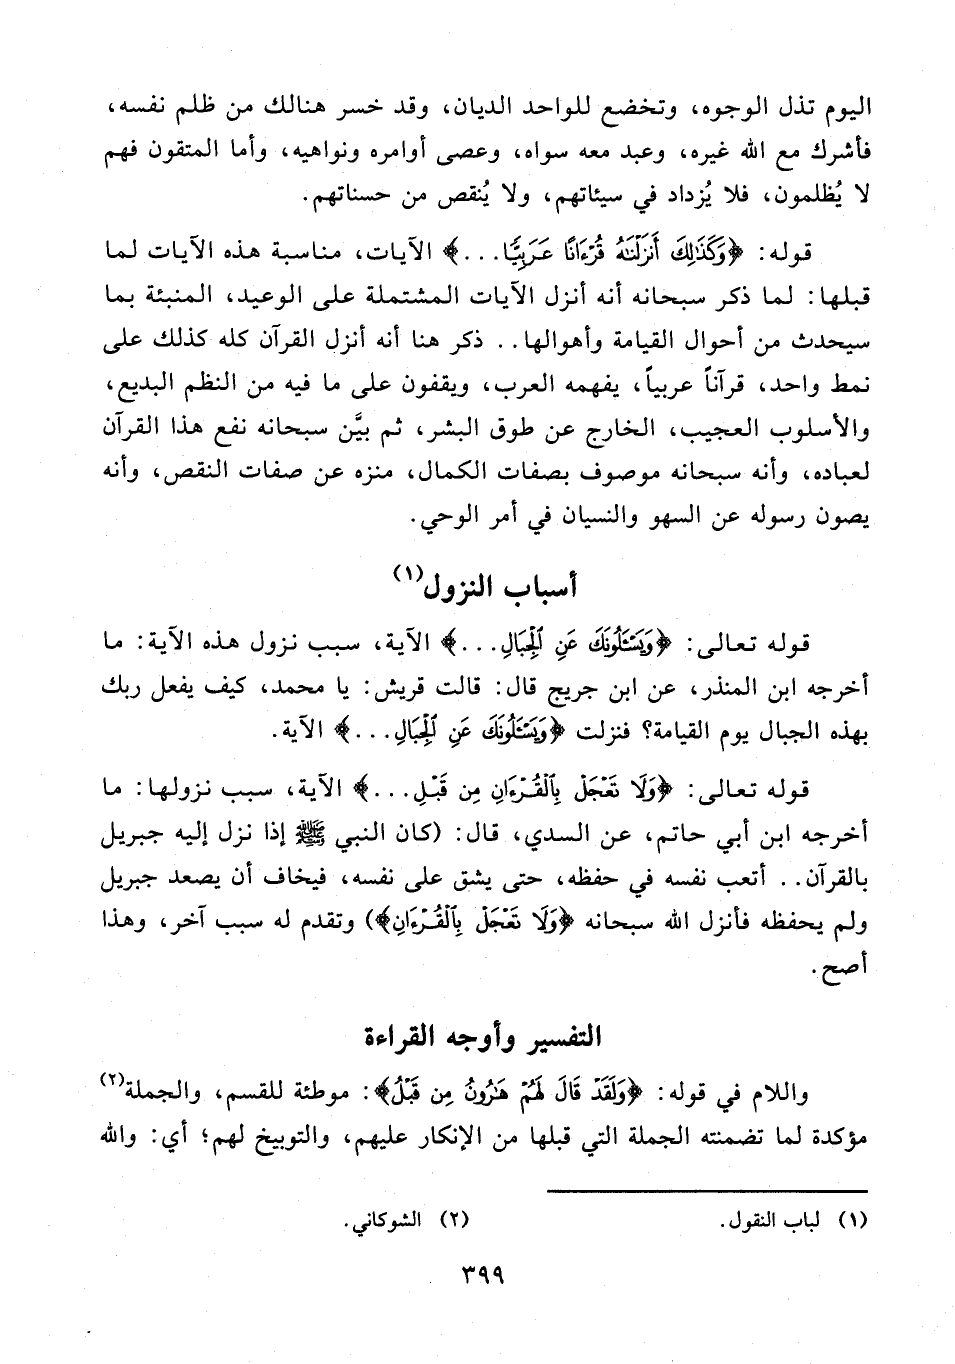 اليوم تذل الوجوه، وتخضع للواحد الديان، وقد خسر هنالك من ظلم نفسه،
فأشرك مع الله غيره، وعبد معه سواه، وعصى أوامره ونواهيه، وأما المتقون فهم
لا يُظلمون، فلا يُزداد في سيئاتهم، ولا يُنقص من حسناتهم.
قوله: ﴿وَكَذَٰلِكَ أَنزَلْنَٰهُ قُرْءَانًا عَرَبِيًّا...﴾ الآيات، مناسبة هذه الآيات لما
قبلها: لما ذكر سبحانه أنه أنزل الآيات المشتملة على الوعيد، المنبئة بما
سيحدث من أحوال القيامة وأهوالها.. ذكر هنا أنه أنزل القرآن كله كذلك على
نمط واحد، قرآناً عربياً، يفهمه العرب، ويقفون على ما فيه من النظم البديع،
والأسلوب العجيب، الخارج عن طوق البشر، ثم بيَّن سبحانه نفع هذا القرآن
لعباده، وأنه سبحانه موصوف بصفات الكمال، منزه عن صفات النقص، وأنه
يصون رسوله عن السهو والنسيان في أمر الوحي.
أسباب النزول(١)
قوله تعالى: ﴿وَيَسْـَٔلُونَكَ عَنِ ٱلْجِبَالِ...﴾ الآية، سبب نزول هذه الآية: ما
أخرجه ابن المنذر، عن ابن جريج قال: قالت قريش: يا محمد، كيف يفعل ربك
بهذه الجبال يوم القيامة؟ فنزلت ﴿وَيَسْـَٔلُونَكَ عَنِ ٱلْجِبَالِ...﴾ الآية.
قوله تعالى: ﴿وَلَا تَعْجَلْ بِٱلْقُرْءَانِ مِن قَبْلِ...﴾ الآية، سبب نزولها: ما
أخرجه ابن أبي حاتم، عن السدي، قال: (كان النبي ﷺ إذا نزل إليه جبريل
بالقرآن.. أتعب نفسه في حفظه، حتى يشق على نفسه، فيخاف أن يصعد جبريل
ولم يحفظه فأنزل الله سبحانه ﴿وَلَا تَعْجَلْ بِٱلْقُرْءَانِ﴾) وتقدم له سبب آخر، وهذا
أصح.
التفسير وأوجه القراءة
واللام في قوله: ﴿وَلَقَدْ قَالَ لَهُمْ هَٰرُونُ مِن قَبْلُ﴾: موطئة للقسم، والجملة(٢)
مؤكدة لما تضمنته الجملة التي قبلها من الإنكار عليهم، والتوبيخ لهم؛ أي: والله
(١) لباب النقول. (٢) الشوكاني.
٣٩٩